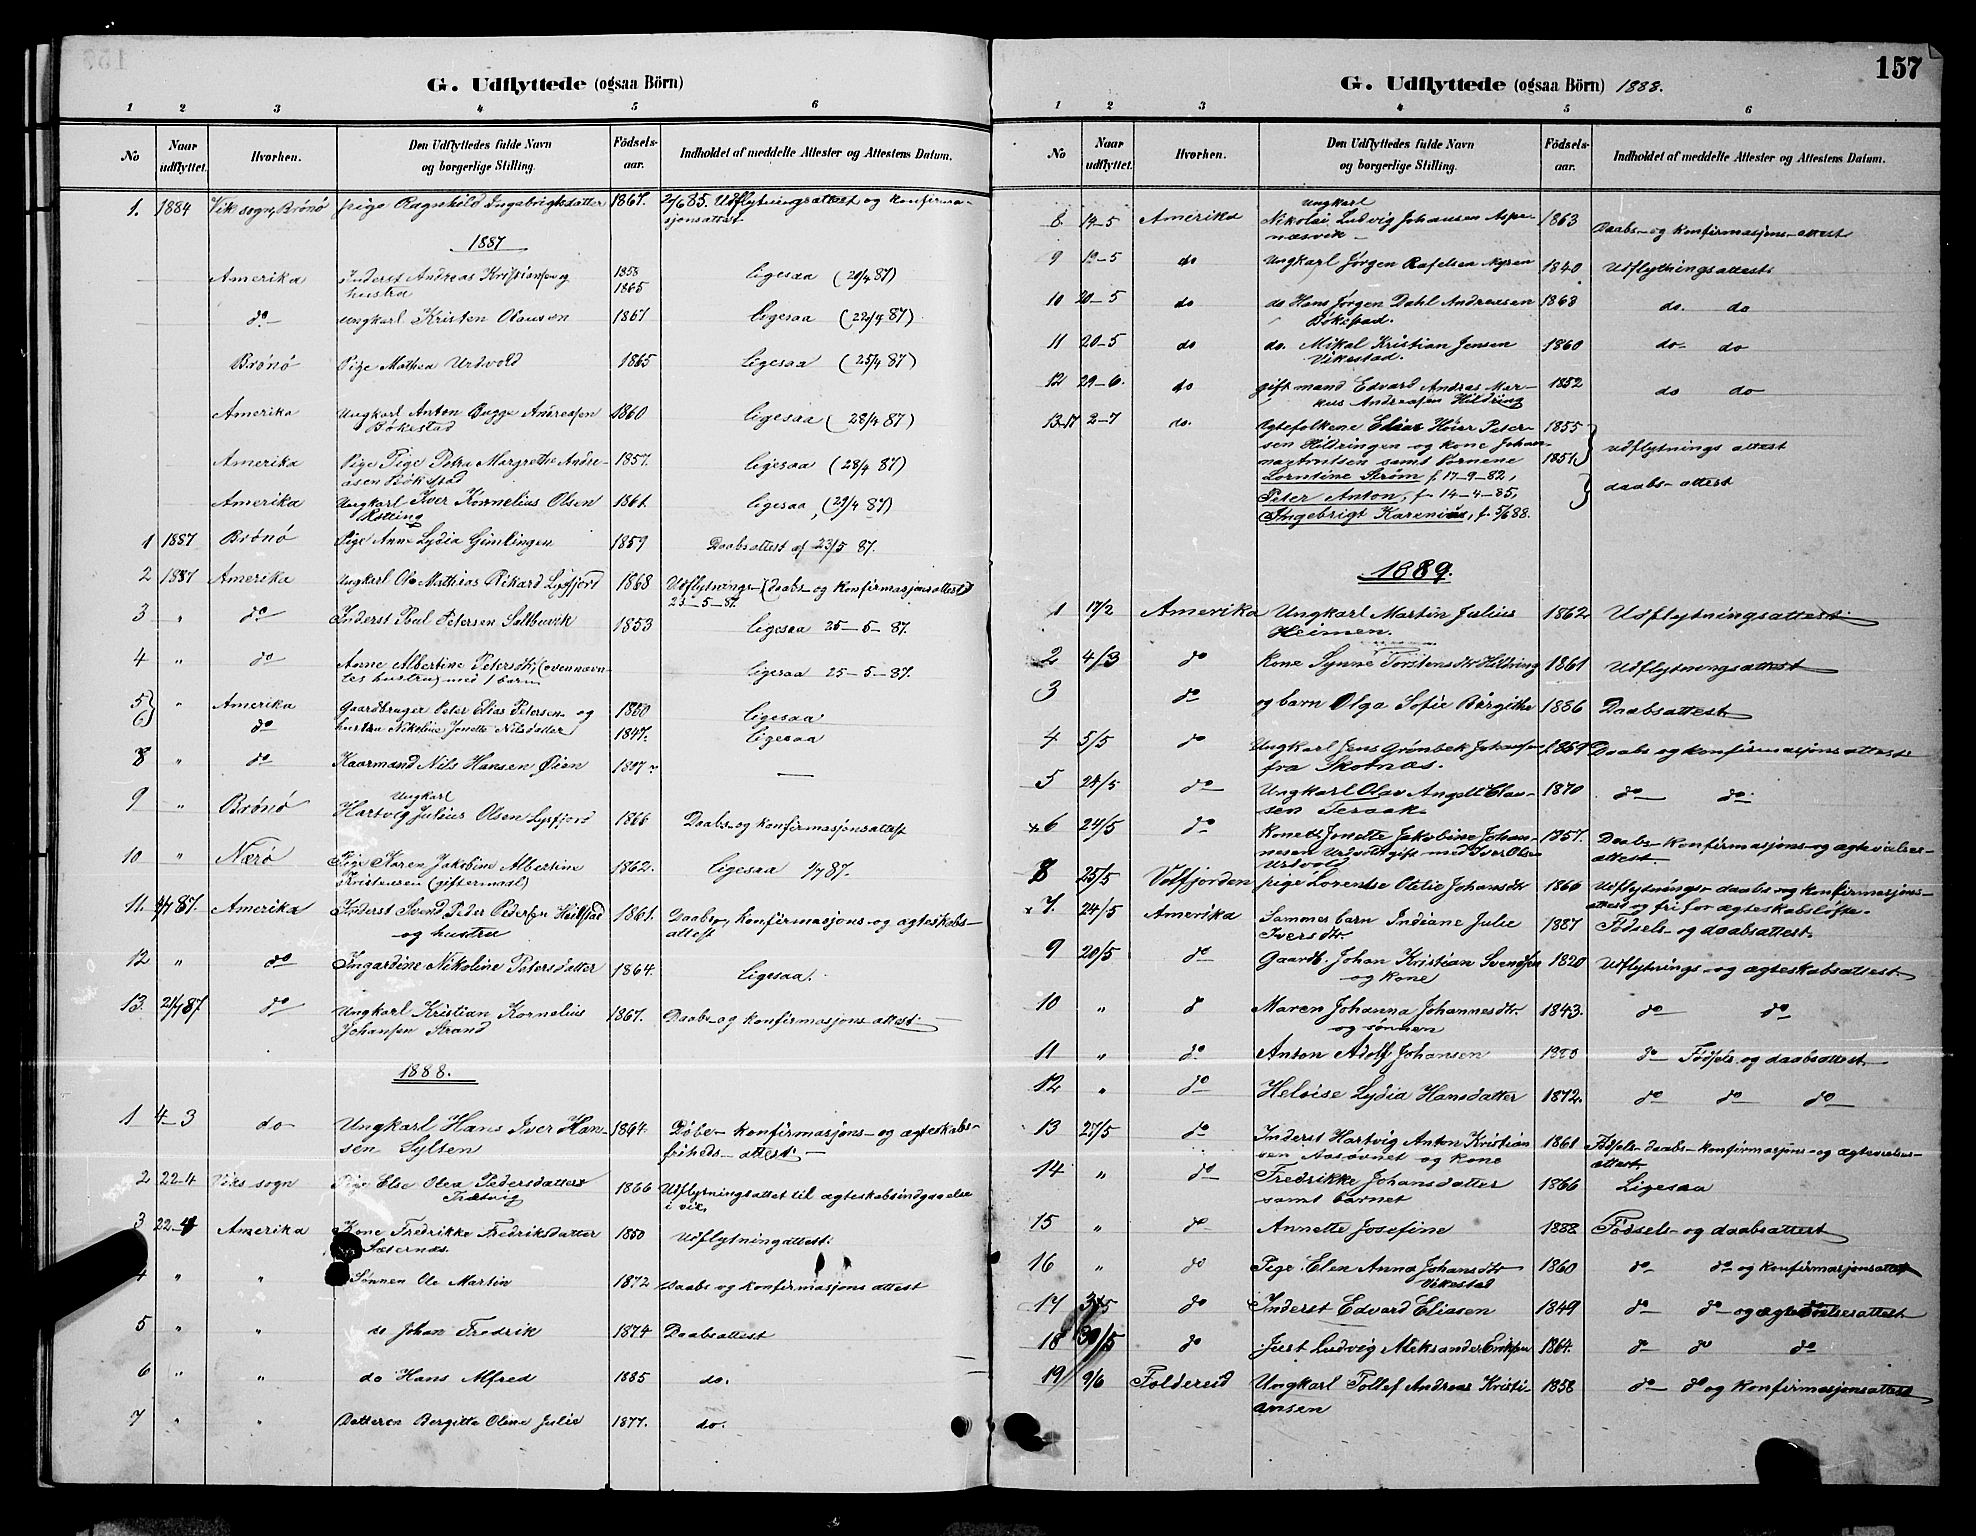 G. Udflyttede (ogsaa Börn)
1 2 3 4 5 6
No Naar udflyttet. Hvorhen. Den Udflyttedes fulde Navn og borgerlige Stilling. Födsels-aar. Indholdet af meddelte Attester og Attestens Datum.
1. 1884 Vik sogn, Brönö pige Ragnhild Ingebrigtsdatter 1867. 2/6 85. Udflytningsattest og konfirma-
sjonsattest
1887
Amerika Inderst Andreas Kristiansen og 1858
hustru 1865 ligesaa (20/4 87)
do Ungkarl Kristen Olausen 1867 ligesaa (22/4 87)
Brönö Pige Mathea Urdvold 1865 ligesaa (25/4 87)
Amerika Ungkarl Anton Bugge Andreasen 1860 ligesaa (28/4 87)
Bökestad
Amerika Pige Pige Petra Margrethe Andre- 1857. ligesaa (28/4 87)
asen Bökestad
Amerika Ungkarl Iver Kornelius Olsen 1861. ligesaa, (29/4 87)
1 1887 Brönö Pige Anne Lydia Gimlingen 1859 Daabsattest af 23/5 87.
2 1887 Amerika Ungkarl Ole Mathias Rikard Lysfjord 1868 Udflytnings- (daabs- og konfirmasjonsattest)
25-5-87.
3 " do Inderst Poul Petersen Saltbuvik 1853 ligesaa 25-5-87.
4 " do Anne Albertine Petersdtr, (ovennævn-
tes hustru) med 1 barn ligesaa 25-5-87.
5 " Amerika Gaardbruger Peter Elias Petersen og 1860 ligesaa
6 do hustru Nikoline Jonette Nilsdatter 1847. ligesaa
8 " do Kaarmand Nils Hansen Øien 1807 —
9 " Brönö Ungkarl
Hartvig Julius Olsen Lysfjord 1866 Daabs- og konfirmasjonsattest
10 " Nærö Pige Karen Jakobine Albertine 1862. ligesaa 1/7 87.
Kristensen (giftermaal)
11. 4/7 87. Amerika Inderst Svend Peder Pedersen 1861. Daabs-, konfirmasjons- og ægteskabs-
og hustru attest
12 " do Ingardine Nikoline Petersdatter 1864. ligesaa.
13. 21/7 87 do Ungkarl Kristian Kornelius 1867. Daabs- og konfirmasjons attest.
Johansen Strand
1888.
1 4-3 do Ungkarl Hans Iver Han- 1864. Döbe- konfirmasjons- og ægteskabs-
sen Sylten friheds- attest. —
2 22-4 Viks sogn Pige Else Olea Pedersdatter 1866 Udflytningsattet til ægteskabsindgaaelse
Trætvig i vik.
3 22-4 Amerika Kone Fredrikke Fredriksdatter 1850 Udflytningattest.
Sæternæs.
4 " " Sönnen Ole Martin 1872 Daabs og konfirmasjons attest
5 " " do Johan Fredrik 1874 Daabsattest
6 " " do Hans Alfred 1885 do.
7 " " Datteren Bergitte Oline Julie 1877. do.
157
G. Udflyttede (ogsaa Börn) 1888.
1 2 3 4 5 6
No Naar udflyttet. Hvorhen. Den Udflyttedes fulde Navn og borgerlige Stilling. Födsels-aar. Indholdet af meddelte Attester og Attestens Datum.
Ungkarl
8 19-5 Amerika Nikolai Ludvig Johansen Aspe- 1863 Daabs- og konfirmasjons-attest
næsvik
9 19-5 do Ungkarl Jørgen Rafelsen Nysen 1840 Udflytningsattest.
10 20-5 do do Hans Jörgen Dahl Andreasen 1863 do. do
Bökestad.
11 20-5 do do. Mikal Kristian Jensen 1860 do- do
Vikestad.
12 29-6. do gift mand Edvard Andras Mar- 1852 do do
kus Andreasen Hildring
13-17 2-7 do. Ægtefolkene Elias Høier Peter- 1855
sen Hildringen og kone Johan- 1851 udflytnings attest
samt Børnene
Lorntine Strøm f. 17-9-82, daabs-attest
Peter Anton, f. 14-4-85,
Ingebrigt Karenius, f. 5/6 88.
1889.
1 17/2 Amerika Ungkarl Martin Julius 1862 Udflytningsattest
Heimen.
2 4/3 do Kone Synne Torstensdtr Hildring 1861 Udflytningsattest
3 do og barn Olga Sofie Birgithe 1886 Daabsattest
4 5/5 do Ungkarl Jens Grönbek Johansen 1869 Daabs og konfirmasjons attest
fra Skotnæs.
5 24/5 do Ungkarl Olav Angell Olav- 1870 do do
sen Teraak.
x6 24/5 do Konen Jonette Jakobine Johan- 1857. Daabs- konfirmasjons- og ægtevielses-
nesen Urdvold gift med Iver Ols- attest
Urdvold
8 25/5 Velfjorden pige Lorentse Otelie Johansdtr 1866 Udflytnings- daabs- og konfirmasjons-
attest og fri for ægteskabsløfte.
x7. 24/5 Amerika Sammes barn Indiane Julie 1887 Födsels- og daabsattest.
Iversdtr
9 20/5 do Gaardb. Johan Kristian Svendsen 1820 Udflytnings- og ægteskabsattest
og kone
10 " do Maren Johanna Johannesdtr 1843. do do
og sönnen
11 " do Anton Adolf Johansen 1880 do Födsels og daabsattest
12 " do Heloise Lydia Hansdatter 1872. do do do
13 27/5 do Inderst Hartvig Anton Kristian 1861 Födsels- daabs- konfirmasjons- og ægtevielses-
sen Aasövnet og kone attest
14 " do Fredrikke Johansdatter 1866 Ligesaa
samt barnet
15 " do Annette Josefine 1888 Födsels- og daabsattest
16 " do Pige Elen Anna Johansdtr 1860 do do og konfirmasjonsattest
Vikestad
17 do Inderst Edvard Eliasen 1849 do do og ægtevielsesattest
18 30/5 do Just Ludvig Aleksander Eriksen 1864. do do do
19 9/6 Foldereid Ungkarl Tollef Andreas Kristi- 1858 do do og konfirmasjonsattest
ansen